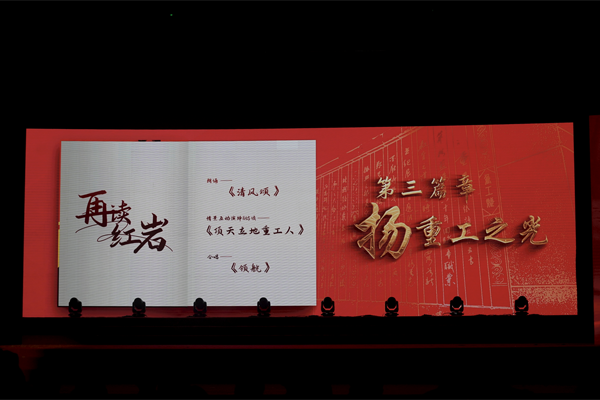 再读
红岩
朗诵——
《清风颂》
情景互动演绎
《顶天立地重工人》
合唱——
《领航》
第三篇章
扬重工之光